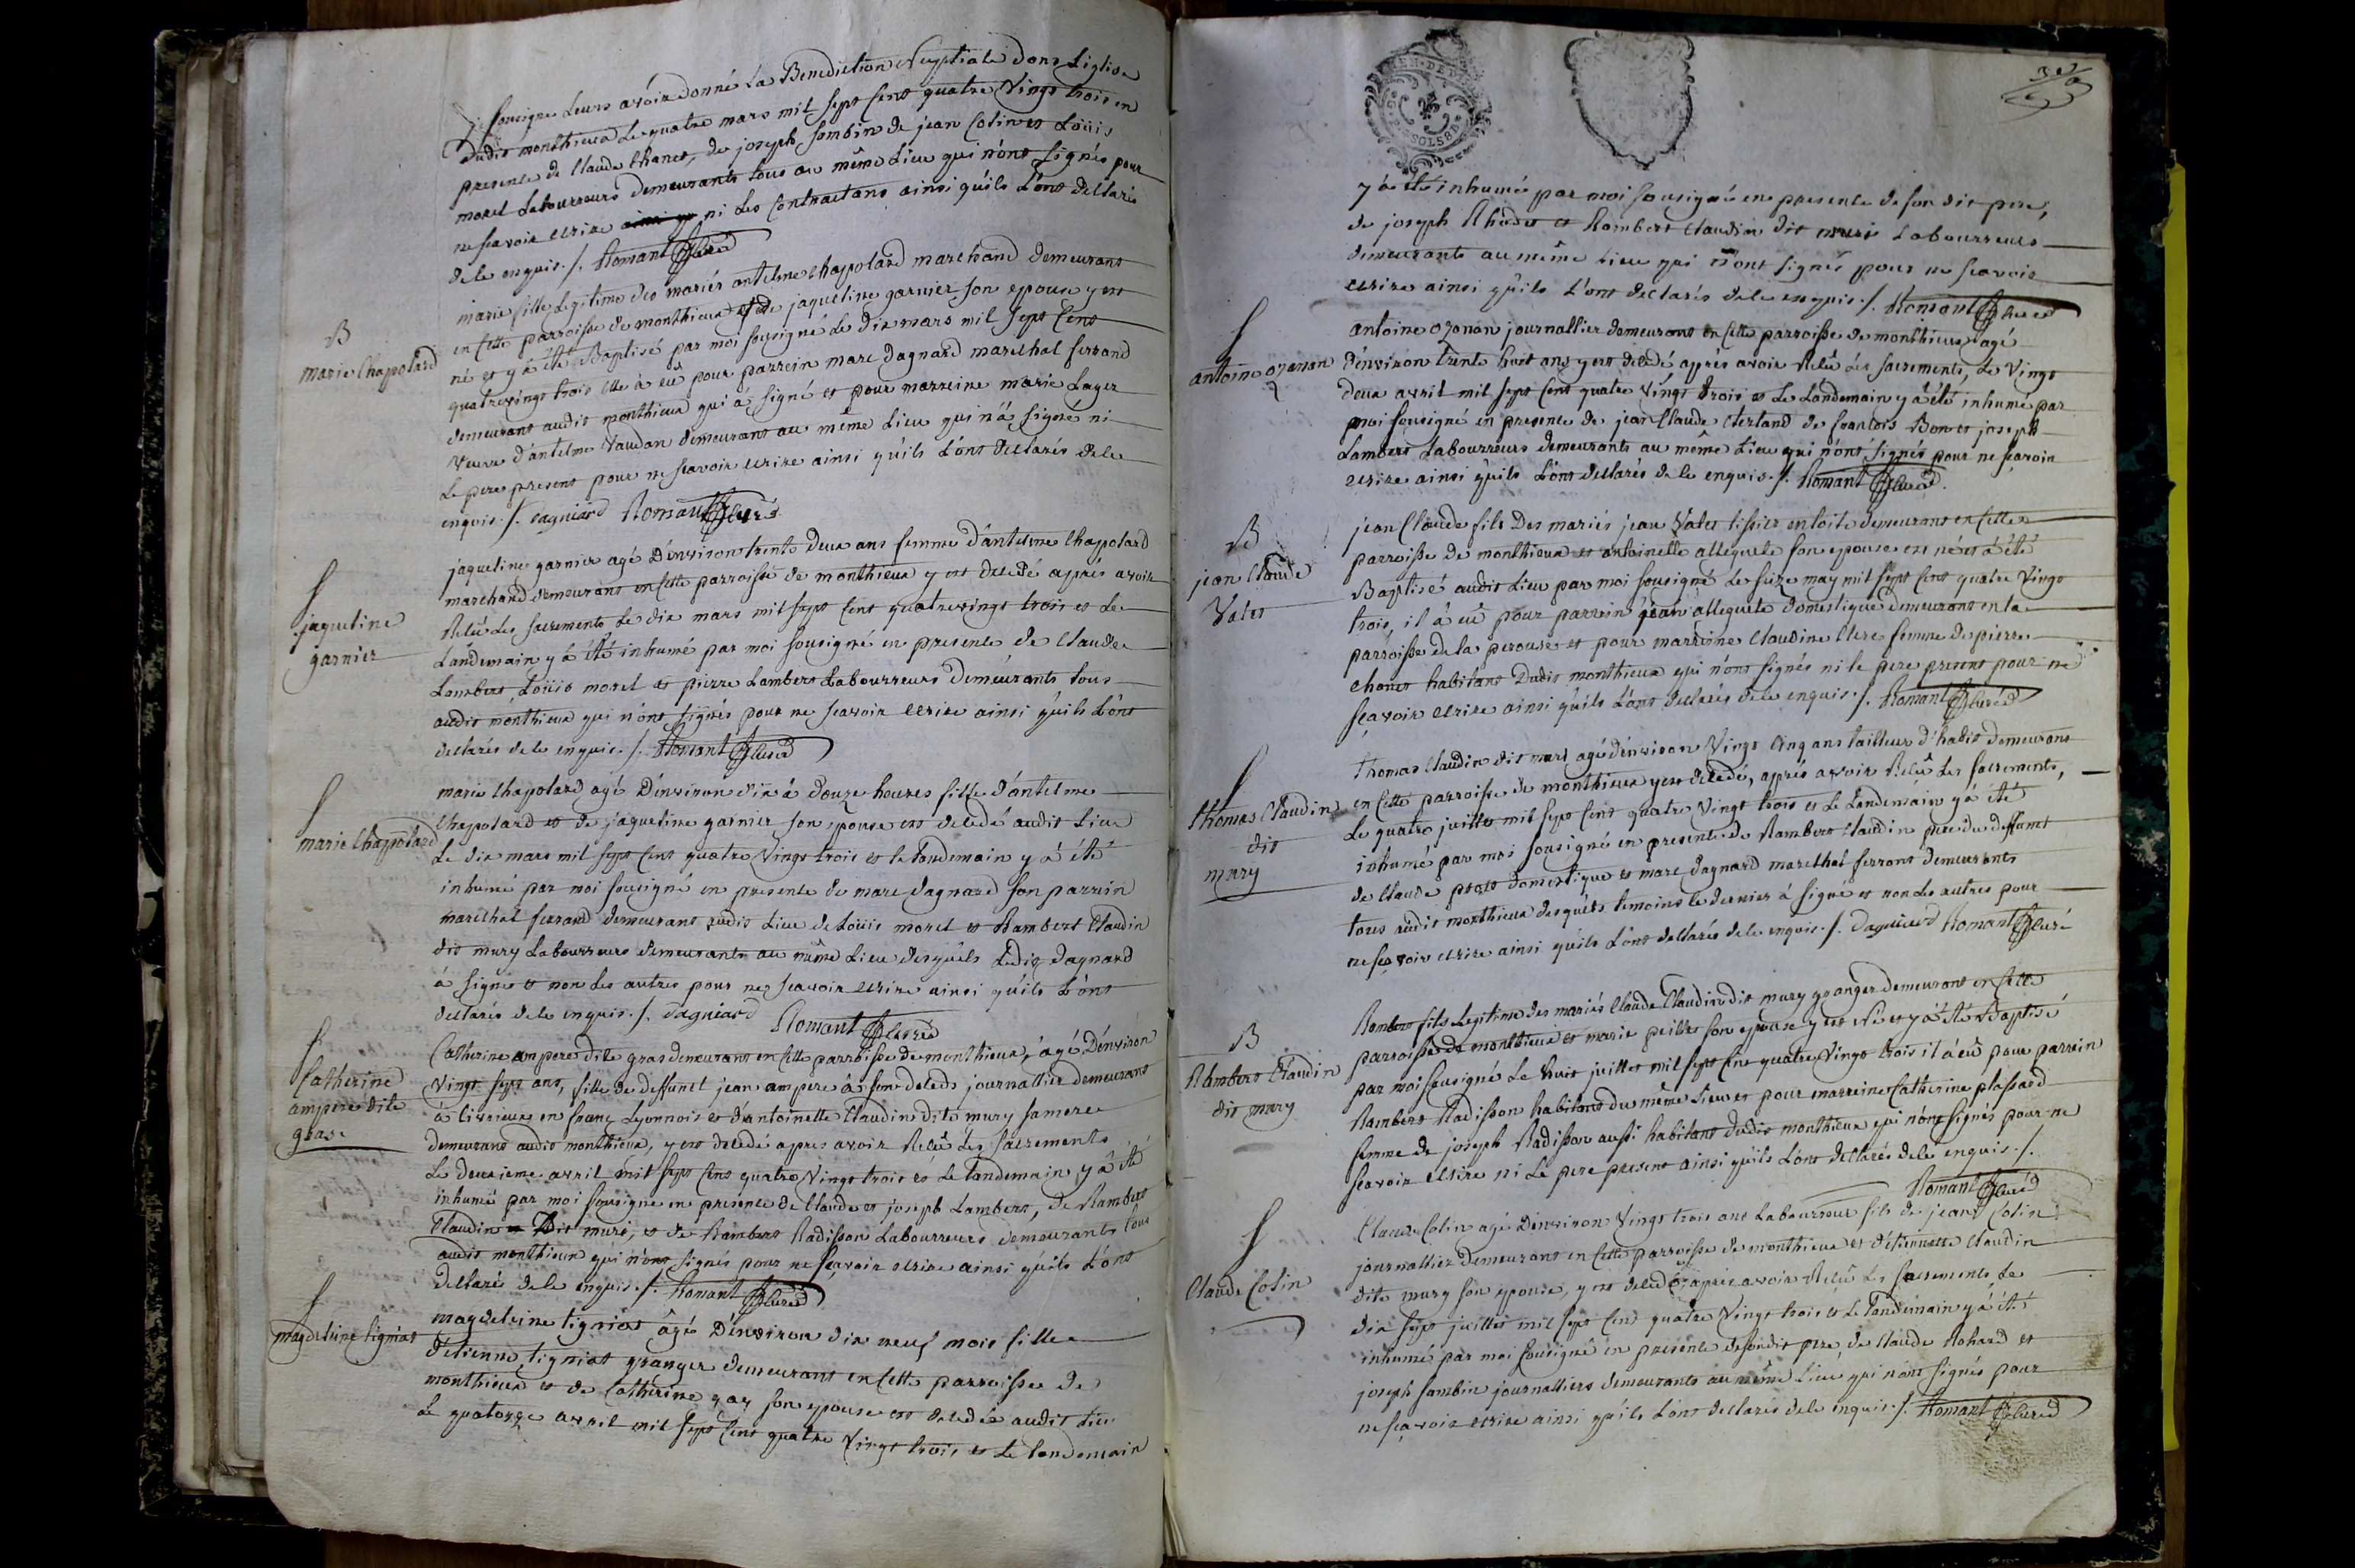 sousigné Leurs avoir donné La Benediction Nuptiale dans L'eglise
Dudit monthieux Le quatre mars mil sept Cent quatre Vingt trois en
presence de Claude Chanet, de joseph Sambin de jean Colin et Loüis
morel Labourreurs demeurants tous au même Lieu qui n'ont signés pour
ne scavoir ecrire ni Les Contractans ainsi qu'ils L'ont declarés
de ce enquis ./. Romant Curé
B
marie Chapolard
marie fille Legitime des mariés antelme Chappolard marchand demeurant
en cette parroisse de monthieux et de jaqueline garnier son epouse y est
né et y à été Baptisé par moi sousigné Le dix mars mil sept Cent
quatrevingt trois elle à eû pour parrein marc dagnard marechal ferrand
demeurant audit monthieux qui à signé et pour marreine marie Layer
veuve d'antelme Vaudan demeurant au même Lieu qui n'à signé ni
Le pere present pour ne scavoir ecrire ainsi qu'ils L'ont declarés de ce
enquis ./. dagniard Romant Curé
jaqueline
garnier
jaqueline garnier agé D'environ trente Deux ans femme d'antelme Chapolard
marchand demeurant en cette parroisse de monthieux y est decedé aprés avoir
Recû Les sacrements Le dix mars mil sept Cent quatrevingt trois et Le
Landemain y à été inhumé par moi sousigné en presence de Claude
Lambert, Loüis morel et pierre Lambert Labourreurs demeurants tous
audit monthieux qui n'ont signés pour ne scavoir ecrire ainsi qu'ils L'ont
declarés de ce enquis ./. Romant Curé
marie Chappolard
marie Chapolard agé D'environ dix à douze heures fille d'antelme
Chapolard et de jaqueline garnier son epouse est decedé audit Lieu
Le dix mars mil sept Cent quatre Vingt trois et le landemain y à été
inhumé par moi sousigné en presence de marc dagnard son parrein
marechal ferrand demeurant audit Lieu de Loüis morel et Rambert Claudin
dit mury Labourreurs demeurants au même Lieu desquels Ledit dagnard
à signé et non Les autres pour ne scavoir ecrire ainsi qu'ils L'ont
declarés de ce enquis ./. dagniard Romant Curé
Catherine
ampere dite
gras
Catherine ampere dite gras demeurant en cette parroisse de monthieux, agé D'environ
Vingt sept ans, fille de deffunct jean ampere à son deceds journallier demeurant
à Civrieux en franc Lyonnois et d'antoinette Claudin dite mury sa mere
demeurant audit monthieux, y est decedé apres avoir Recû Les sacrements
Le deuxieme avril mil sept Cent quatre Vingt trois et Le landemain y à été
inhumé par moi sousigné en presence de Claude et joseph Lambert, de Rambert
Claudin dit muri, et de Rambert Radisson Labourreurs demeurants tous
audit monthieux qui n'ont signés pour ne scavoir ecrire ainsi qu'ils L'ont
declaré de ce enquis ./. Romant Curé
magdeleine tigniat
magdeleine tigniat agé D'environ dix neuf mois fille
d'etienne tigniat granger demeurant en cette parroisse de
monthieux et de Catherine gay son epouse est decedée audit Lieu
Le quatorze avril mil sept Cent quatre Vingt trois et Le landemain
y à été inhumé par moi sousigné en presence de son dit pere,
de joseph et Rambert Claudin dit muri Labourreurs
demeurants au même Lieu qui n'ont signés pour ne scavoir
ecrire ainsi qu'ils L'ont declarés de ce enquis ./. Romant Curé
antoine ozanan
antoine ozanan journallier demeurant en cette parroisse de monthieux agé
D'environ trente huit ans y est decedé aprés avoir Recû Les sacrements, Le Vingt
Deux avril mil sept Cent quatre Vingt trois et Le Landemain y à été inhumé par
moi sousigné en presence de jean Claude de francois Bon et joseph
Lambert Labourreurs demeurants au même Lieu qui n'ont signés pour ne scavoir
ecrire ainsi qu'ils L'ont declarés de ce enquis ./. Romant Curé
B
jean Claude
Valet
jean Claude fils Des mariés jean Valet tissier en toile demeurant en cette
parroisse de monthieux et antoinette allequete son epouse est né et à été
Baptisé audit Lieu par moi sousigné Le seize may mil sept Cent quatre Vingt
trois, il à eû pour parrein jean allequete domestique demeurant en la
parroisse de la perouse et pour marreine Claudine Clere femme de pierre
Chanet habitant Dudit monthieux qui n'ont signés ni le pere present pour ne
scavoir ecrire ainsi qu'ils L'ont declarés de ce enquis ./. Romant Curé
thomas Claudin
dit
mury
thomas Claudin dit muri agé d'environ Vingt Cinq ans tailleur d'habit demeurant
en cette parroisse de monthieux y est decedé, aprés avoir Recû Les sacrements,
Le quatre juillet mil sept Cent quatre Vingt trois et Le Landemain y à été
inhumé par moi sousigné en presence de Rambert Claudin pere du deffunct
de Claude domestique et marc dagnard marechal ferrant demeurants
tous audit monthieux desquels temoins le dernier à signé et non Les autres pour
ne scavoir ecrire ainsi qu'ils L'ont declarés de ce enquis ./. dagniard Romant Curé
B
Rambert Claudin
dit mury
Rambert fils Legitime des mariés Claude Claudin dit mury granger demeurant en cette
parroisse de monthieux et marie peillet son epouse y est né et y à été Baptisé
par moi sousigné Le huit juillet mil sept Cent quatre Vingt trois il à eû pour parrein
Rambert Radisson habitant du même Lieu et pour marreine Catherine plassard
femme de joseph Radisson aussi habitant dudit monthieux qui n'ont signés pour ne
scavoir ecrire ni Le pere present ainsi qu'ils L'ont declarés de ce enquis ./.
Romant Curé
Claude Colin
Claude Colin agé D'environ Vingt trois ans Labourreur fils de jean Colin
journallier demeurant en cette parroisse de monthieux et d'etiennette Claudin
dite mury son epouse, y est decedé, aprés avoir Recû Les sacrements, Le
dix sept juillet mil sept Cent quatre Vingt trois et Le landemain y à été
inhumé par moi sousigné en presence de sondit pere, de Claude Rohard et
joseph Sambin journalliers demeurants au même Lieu qui n'ont signés pour
ne scavoir ecrire ainsi qu'ils L'ont declarés de ce enquis ./. Romant Curé